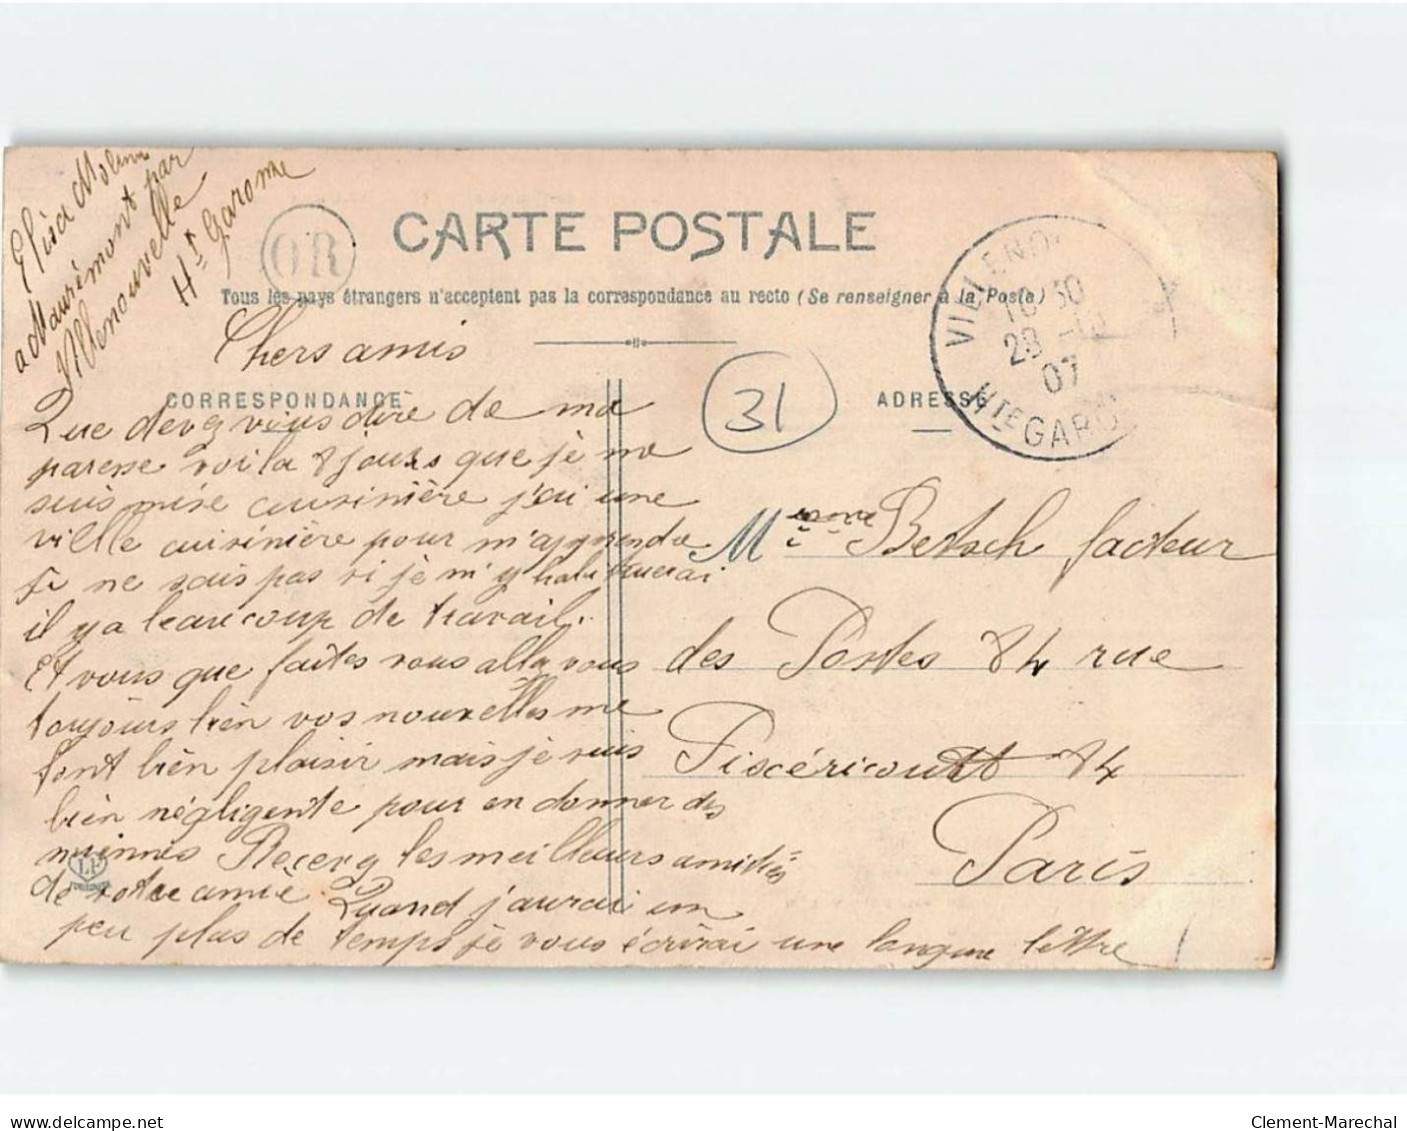 Elisa Molinier
a Maurémont par
Villenouvelle
Hte Garonne
OR
CARTE POSTALE
Tous les pays étrangers n'acceptent pas la correspondance au recto (Se renseigner à la Poste)
VILLENO
10 30
28 -10
07
Hte GARO
Chers amis
31
CORRESPONDANCE
ADRESSE
Que devez vous dire de ma
paresse voila 8 jours que jè me
suis mise cuisinière j'ai une
vielle cuisinière pour m'apprendre
Jè ne sais pas si jè m'y habituerai
il y a beaucoup de travail.
Et vous que faites vous allez vous
toujours bièn vos nouvelles me
font bièn plaisir mais jè suis
bièn négligente pour en donner des
miennes Recevez les meilleurs amitiés
de votre amiè Quand j'aurai un
peu plus de temps jè vous écrirai une langue lettre
M Betsch facteur
des Postes 84 rue
Pixéricourt 84
Paris
Clement-Marechal
www.delcampe.net